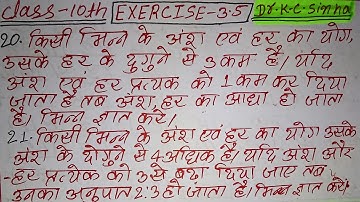 class-10th EXERCISE-3.5 Dr.K.C.Sinha
20. किसी भिन्न के अंश एवं हर का योग
उसके हर के दुगुने से 3 कम है। यदि
अंश एवं हर प्रत्येक को 1 कम कर दिया
जाता है तब अंश, हर का आधा हो जाता
है। भिन्न ज्ञात करें।
21. किसी भिन्न के अंश एवं हर का योग उसके
अंश के दोगुने से 4 अधिक है। यदि अंश और
हर प्रत्येक को 3 से बढ़ा दिया जाए तब
उनका अनुपात 2:3 हो जाता है। भिन्न ज्ञात करें